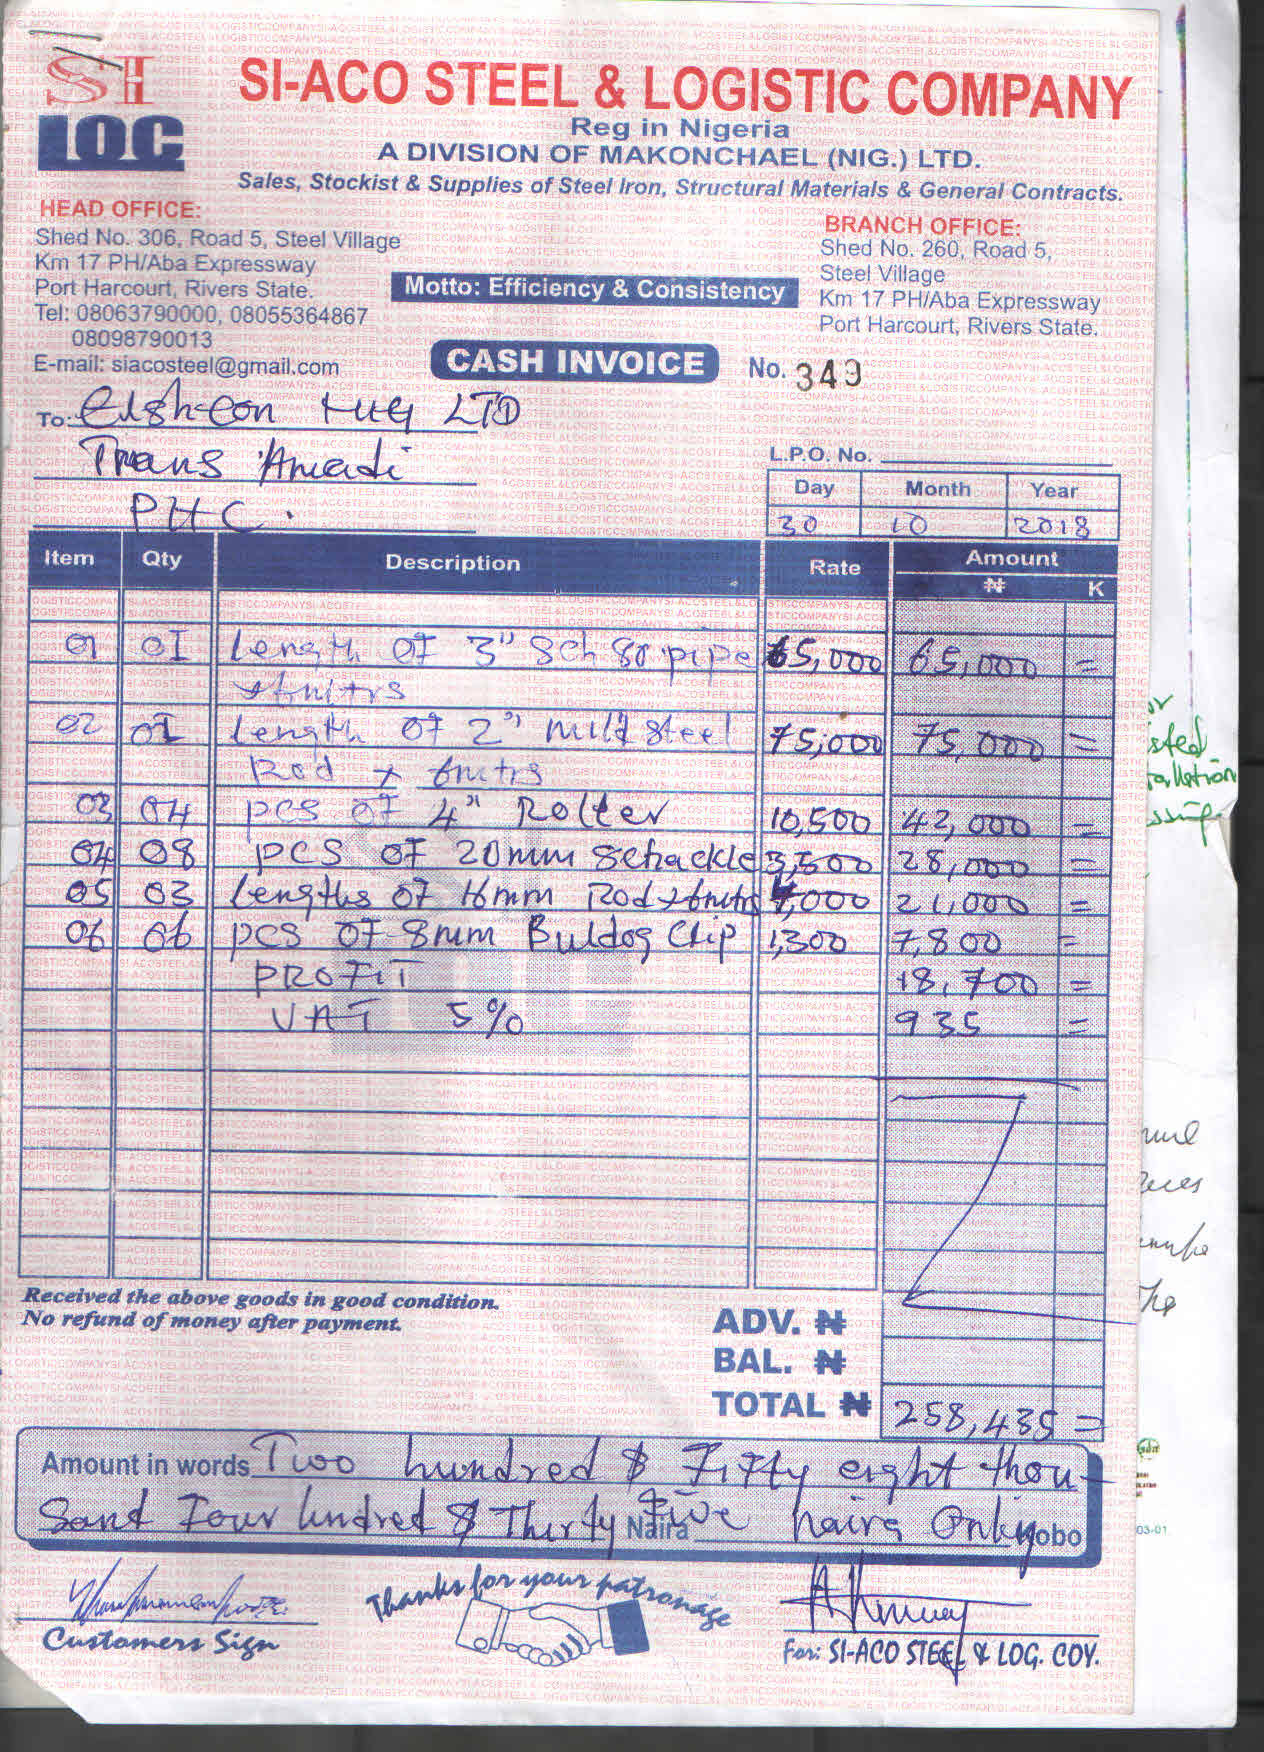 SI
LOC
SI-ACO STEEL & LOGISTIC COMPANY
Reg in Nigeria
A DIVISION OF MAKONCHAEL (NIG.) LTD.
Sales, Stockist & Supplies of Steel Iron, Structural Materials & General Contracts.
HEAD OFFICE:
Shed No. 306, Road 5, Steel Village
Km 17 PH/Aba Expressway
Port Harcourt, Rivers State.
Tel: 08063790000, 08055364867
08098790013
E-mail: siacosteel@gmail.com
BRANCH OFFICE:
Shed No. 260, Road 5,
Steel Village
Km 17 PH/Aba Expressway
Port Harcourt, Rivers State.
Motto: Efficiency & Consistency
CASH INVOICE No. 349
To: LTD
Trans Amadi
PHC.
L.P.O. No.
Day Month Year
30 10 2018
Item Qty Description Rate Amount
₦ K
01 01 Length of 3" Sch 80 pipe 65,000 65,000 =
x 6mtrs
02 01 Length of 2" mild steel 75,000 75,000 =
Rod x 6mtrs
03 04 pcs of 4" Roller 10,500 42,000 =
04 08 pcs of 20mm Schackle 3,500 28,000 =
05 03 Lengths of 16mm Rod x 6mtrs 7,000 21,000 =
06 06 pcs of 8mm Buldog Clip 1,300 7,800 =
PROFIT 18,700 =
VAT 5% 935 =
Received the above goods in good condition.
No refund of money after payment.
ADV. ₦
BAL. ₦
TOTAL ₦ 258,435 =
Amount in words Two hundred & Fifty eight thou-
sand Four hundred & Thirty Five Naira naira Only Kobo
Thanks for your patronage
Customers Sign
For: SI-ACO STEEL & LOG. COY.
The
03-01